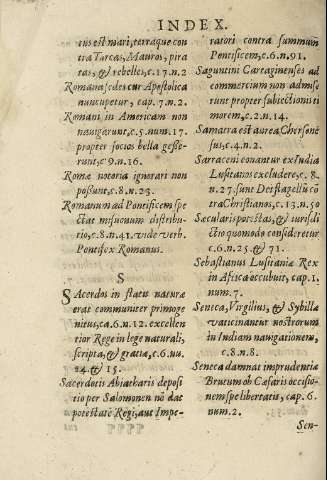 INDEX.
cius est mari, terraque con
tra Turcas, Mauros, pira
tas, & rebelles, c.17.n.2
Romana sedes cur Apostolica
nuncupetur, cap.7.n.2.
Romani in Americam non
navigarunt, c.5.num.17.
propter socios bella gesse-
runt, c.9.n.16.
Romæ notoria ignorari non
possunt, c.8.n.25.
Romanum ad Pontificem spe
ctat missionum distribu-
tio, c.8.n.41. vide verb.
Pontifex Romanus.
S
Sacerdos in statu naturæ
erat communiter primoge
nitus, c.6.n.12. excellen
tior Rege in lege naturali,
scripta, & gratiæ, c.6.nu.
24. & 15.
Sacerdotis Abiatharis deposi
tio per Salomonem nõ dat
potestatē Regi, aut Impe-
ratori contra summum
Pontificem, c.6.n.91.
Saguntini Careaginenses ad
commercium non admise
runt propter subiectionis ti
morem, c.2.n.14.
Samatra est aurea Chersone
sus, c.4.n.2.
Sarraceni conantur ex India
Lusitanos excludere, c.8.
n.27. sunt Dei flagellũ cõ
tra Christianos, c.13.n.50
Sæcularis potestas, & iurisdi
ctio quomodo consideretur
c.6.n.25. & 71.
Sebastianus Lusitaniæ Rex
in Africa occubuit, cap.1.
num.7.
Seneca, Virgilius, & Sybillæ
vaticinantur nostrorum
in Indiam navigationem,
c.8.n.8.
Seneca damnat imprudentiæ
Brutum ob Cæsaris occisio-
nem spe libertatis, cap.6.
num.2.
Sen-